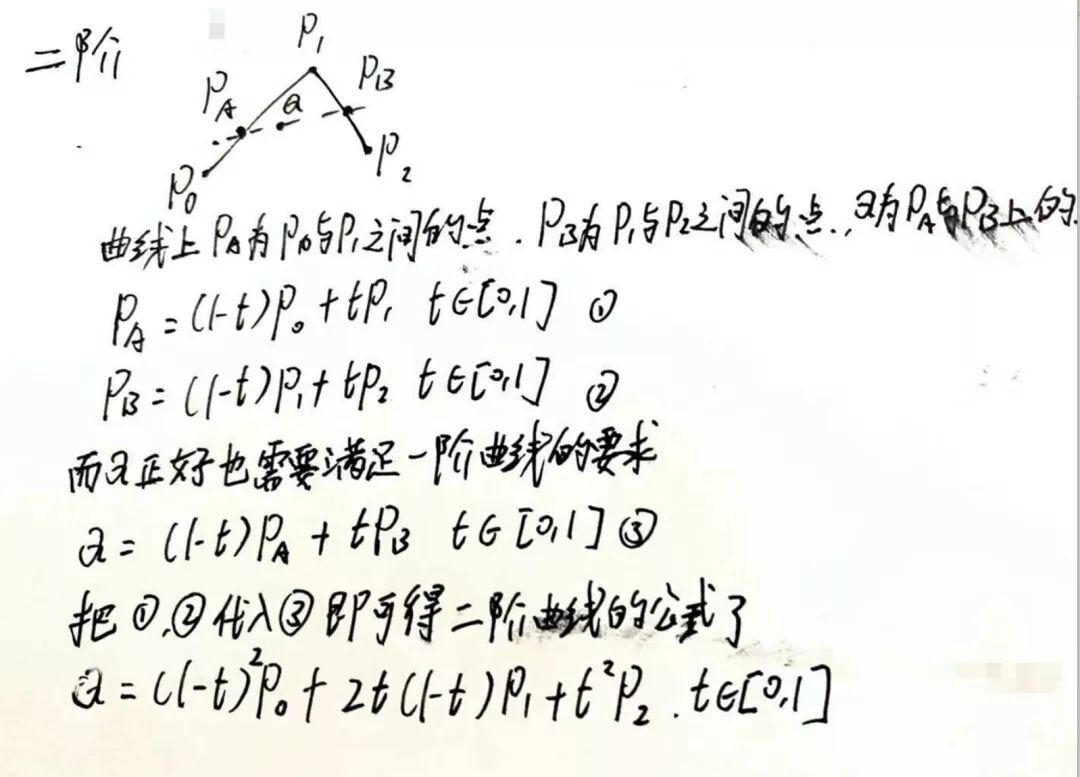 二阶
P₁
P_A
a
P_B
P₀
P₂
曲线上 P_A为P₀与P₁之间的点. P_B为P₁与P₂之间的点., a为P_A与P_B上的.
P_A = (1-t)P₀ + tP₁ t∈[0,1] ①
P_B = (1-t)P₁ + tP₂ t∈[0,1] ②
而a正好也需要满足一阶曲线的要求
a = (1-t)P_A + tP_B t∈[0,1] ③
把 ①,② 代入③即可得二阶曲线的公式了
a = (1-t)²P₀ + 2t(1-t)P₁ + t²P₂. t∈[0,1]